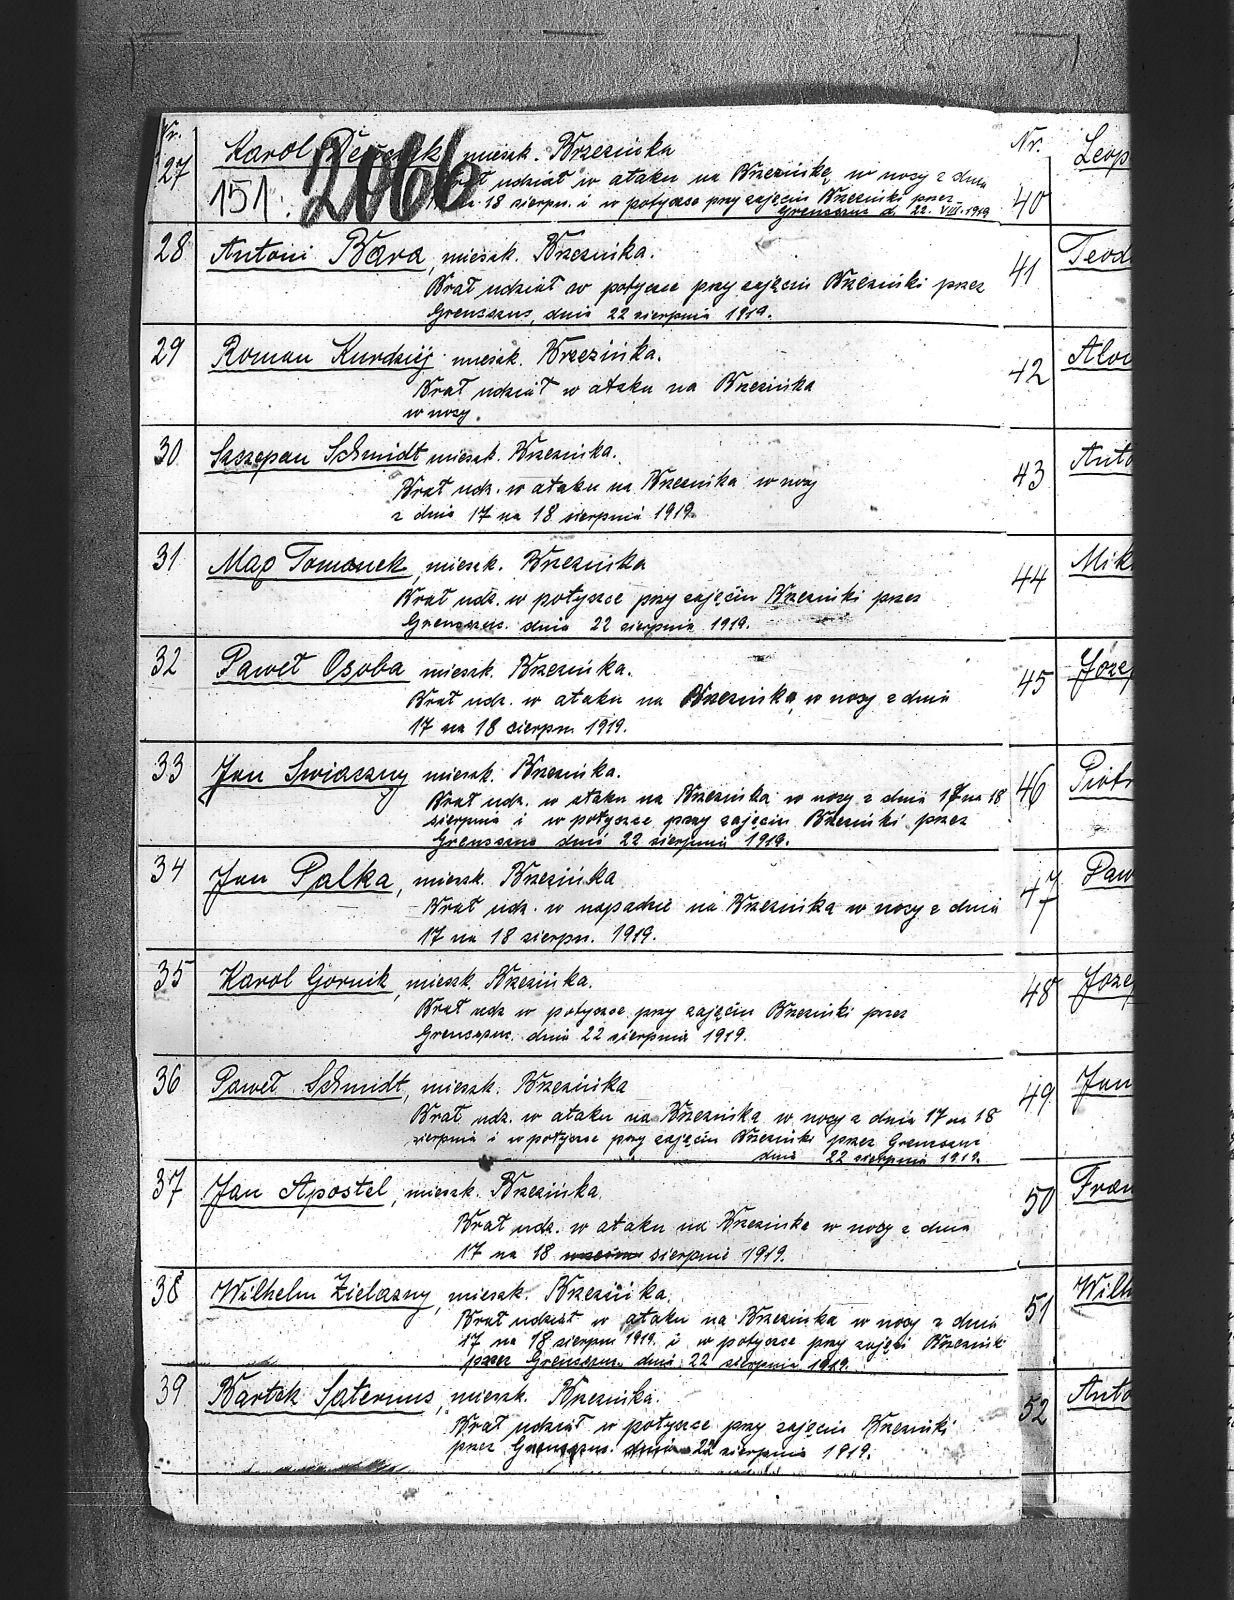 Nr.
27 Karol mieszk. Brzezinka
udział w ataku na Brzezinkę w nocy z dnia
151. 2066 18 sierpn. i w potyczce przy zajęciu Brzezinki przez
Grenszszuc d. 22. VIII. 1919
28 Antoni Bara, mieszk. Brzezinka.
Brał udział w potyczce przy zajęciu Brzezinki przez
Grensszuc, dnia 22 sierpnia 1919.
29 Roman Kurdziej mieszk. Brzezinka.
Brał udział w ataku na Brzezinka
w nocy.
30 Szczepan Schmidt mieszk. Brzezinka.
Brał udz. w ataku na Brzezinka w nocy
z dnia 17 na 18 sierpnia 1919.
31 Map Tomanek, mieszk. Brzezinka
Brał udz. w potyczce przy zajęciu Brzezinki przez
Grensszuc. dnia 22 sierpnia 1919.
32 Paweł Osoba mieszk. Brzezinka.
Brał udz. w ataku na Brzezinka, w nocy z dnia
17 na 18 sierpn. 1919.
33 Jan Swiaczny mieszk. Brzezinka.
Brał udz. w ataku na Brzezinka w nocy z dnia 17 na 18
sierpnia i w potyczce przy zajęciu Brzezinki przez
Grensszuc dnia 22 sierpnia 1919.
34 Jan Palka, mieszk. Brzezinka
Brał udz. w napadzie na Brzezinka w nocy z dnia
17 na 18 sierpn. 1919.
35 Karol Gornik, mieszk. Brzezinka.
Brał udz w potyczce przy zajęciu Brzezinki przez
Grensszuc. dnia 22 sierpnia 1919.
36 Paweł Schmidt, mieszk. Brzezinka
Brał udz. w ataku na Brzezinka w nocy z dnia 17 na 18
sierpnia i w potyczce przy zajęciu Brzezinki przez Grensszuc
dnia 22 sierpnia 1919.
37 Jan Apostel, mieszk. Brzezinka.
Brał udz. w ataku na Brzezinka w nocy z dnia
17 na 18 sierpnia 1919.
38 Wilhelm Zielazny, mieszk. Brzezinka.
Brał udział w ataku na Brzezinka w nocy z dnia
17 na 18 sierpn 1919. i w potyczce przy zajęci Brzezinki
przez Grensszuc. dnia 22 sierpnia 1919.
39 Bartek Saternus, mieszk. Brzezinka.
Brał udział w potyczce przy zajęciu Brzezinki
przez Grensszuc. dnia 22 sierpnia 1919.
Nr. Leop
40
41 Teod
42
43 Anto
44 Mik
45 Józef
46 Piotr
47 Paw
48 Józef
49 Jan
50 Fran
51 Wilh
52 Anto